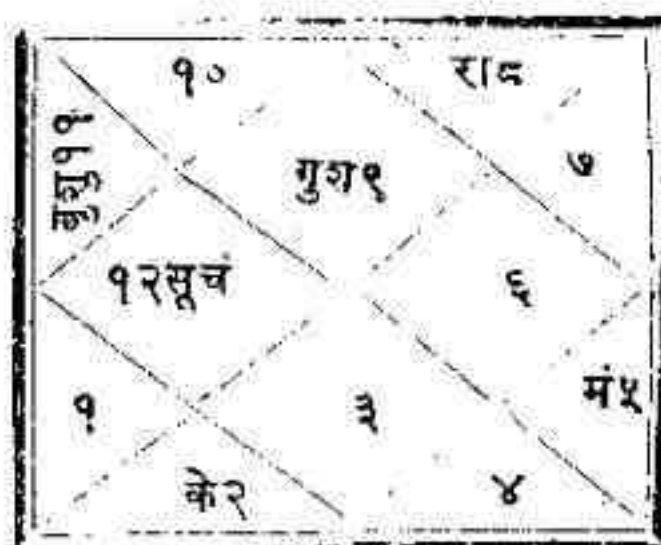 १० रा८
बुशु११ गुश९ ७
१२सूचं ६
१ ३ मं५
के२ ४